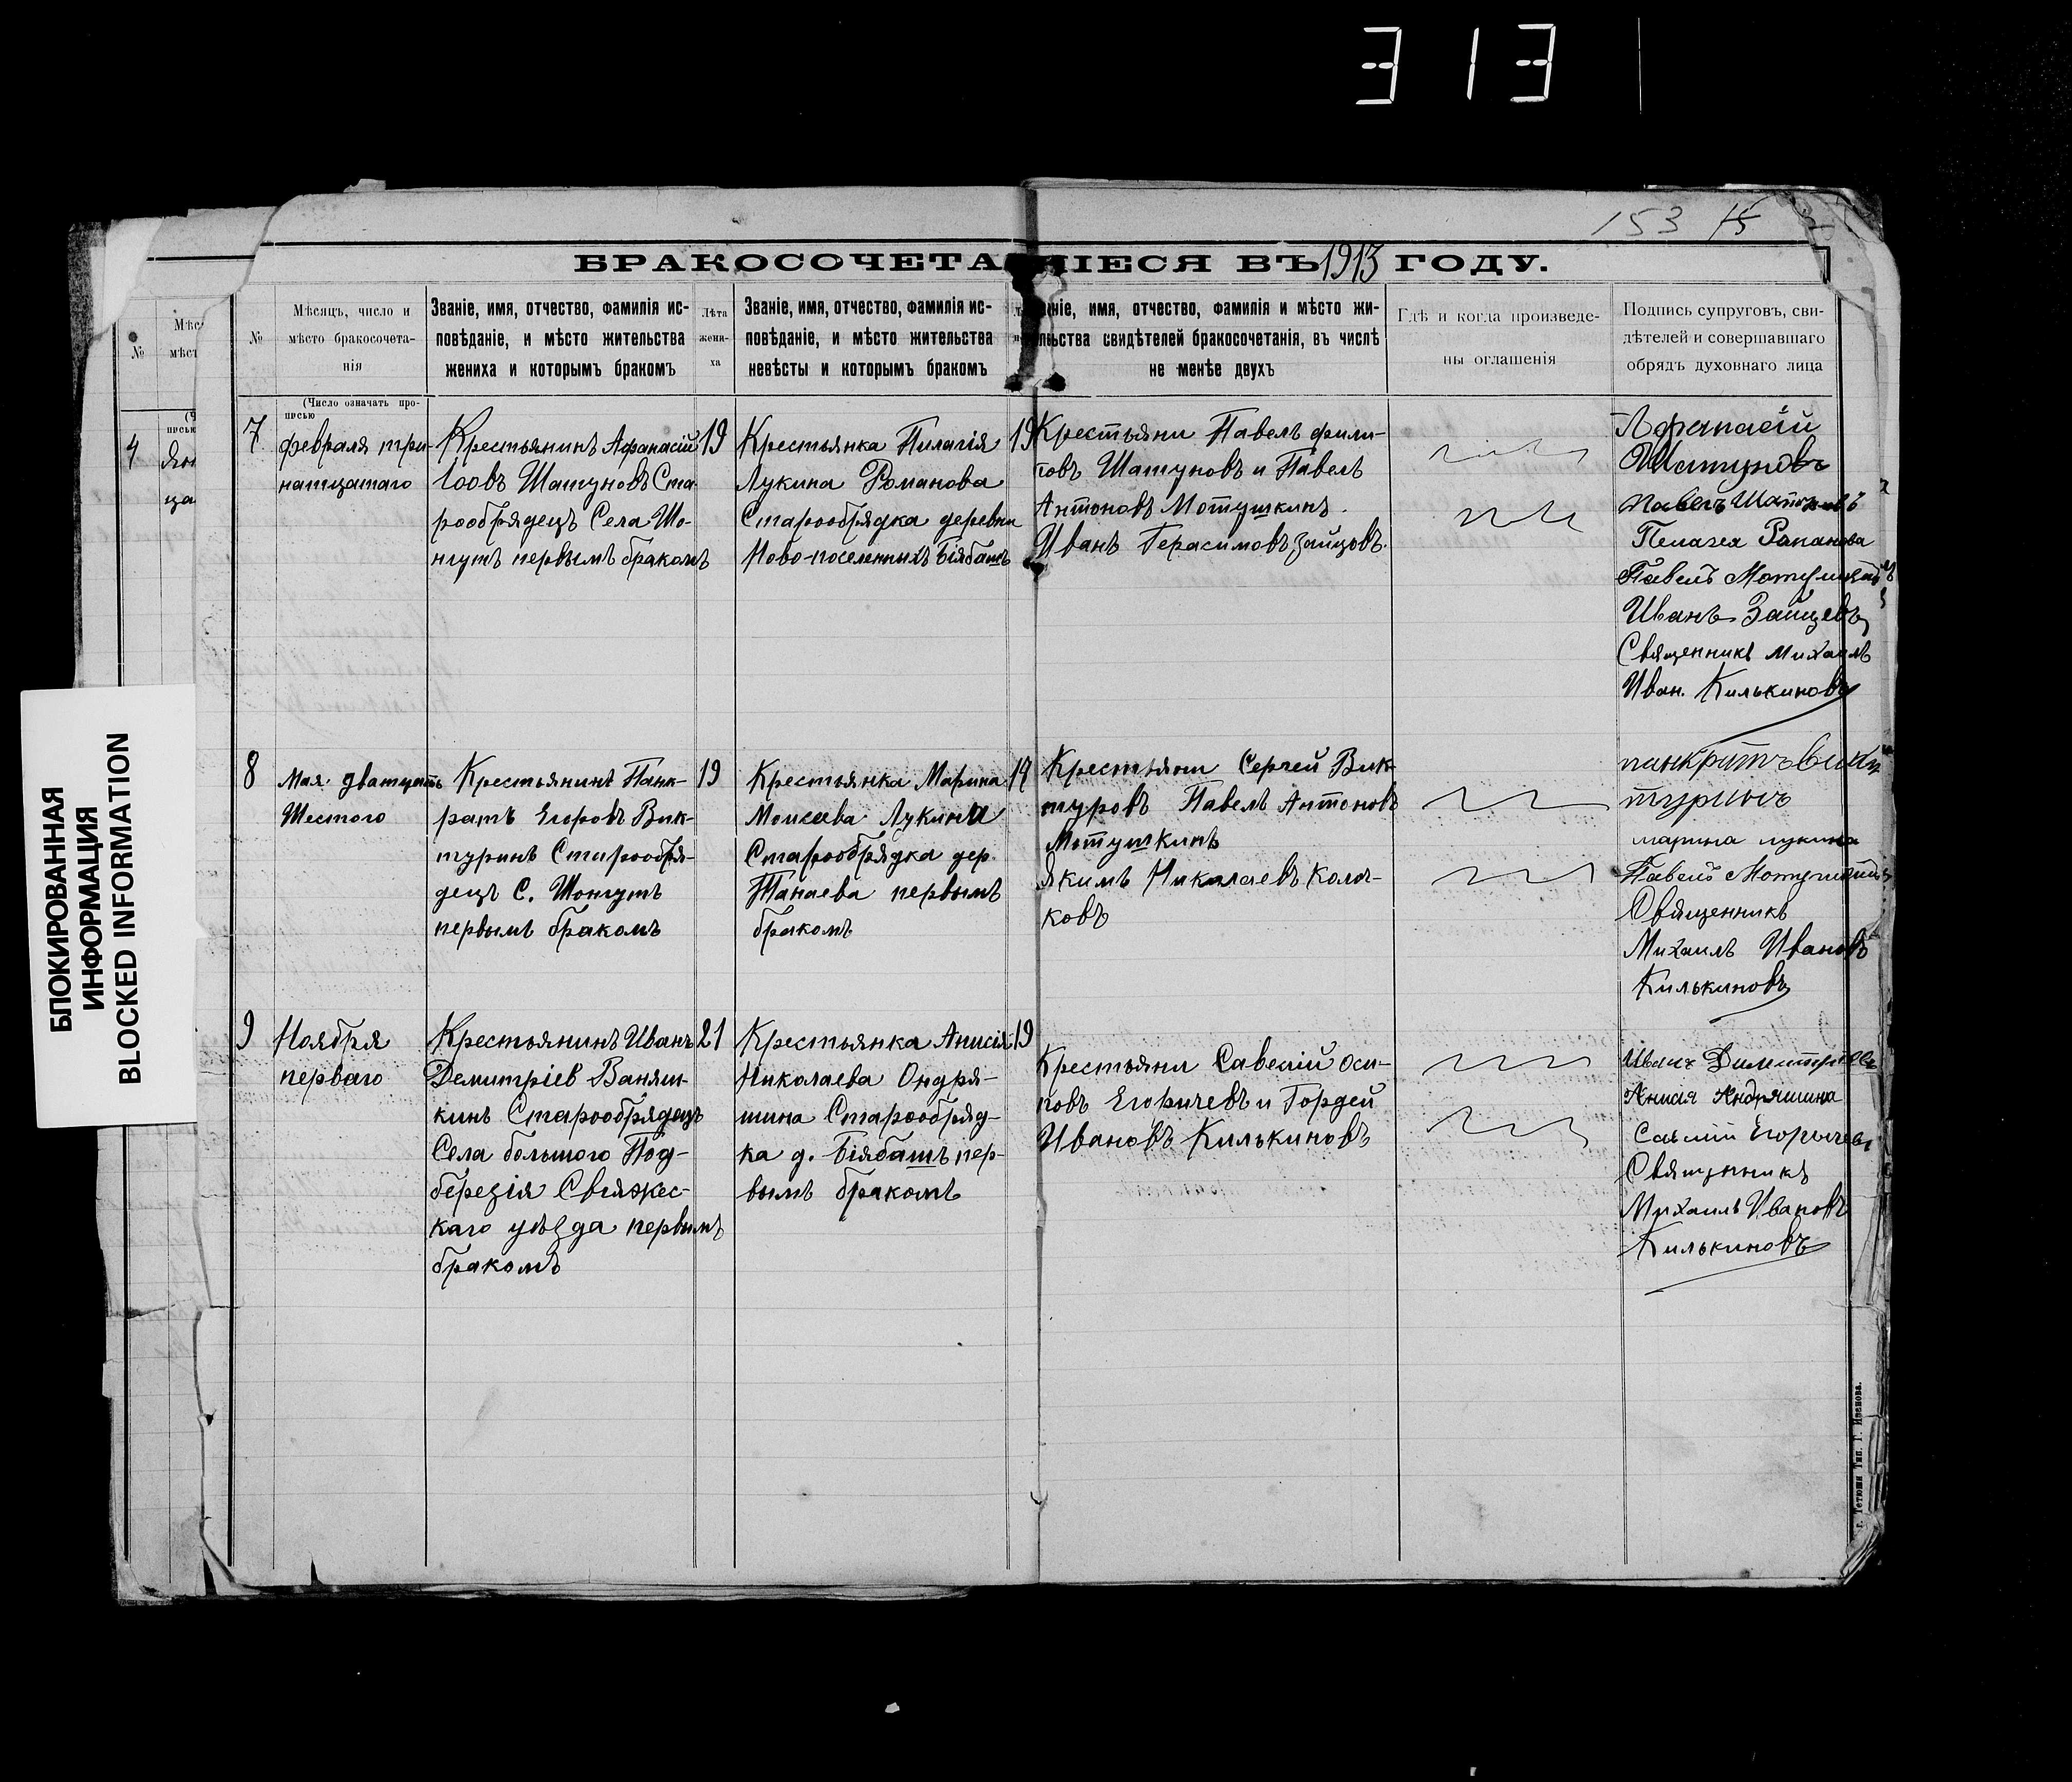 313
153 15
БРАКОСОЧЕТА ШІЕСЯ ВЪ 1913 ГОДУ.
№
Мѣс
мѣст
4
Яю
ца
№
Мѣсяцъ, число и
мѣсто бракосочета-
нія
Званіе, имя, отчество, фамилія ис-
повѣданіе, и мѣсто жительства
жениха и которымъ бракомъ
Лѣта
жени-
ха
Званіе, имя, отчество, фамилія ис-
повѣданіе, и мѣсто жительства
невѣсты и которымъ бракомъ
аніе, имя, отчество, фамилія и мѣсто жи-
льства свидѣтелей бракосочетанія, въ числѣ
не менѣе двухъ
Гдѣ и когда произведе-
ны оглашенія
Подпись супруговъ, сви-
дѣтелей и совершавшаго
обрядъ духовнаго лица
(Число означать про-
писью
7
февраля три-
натцатаго
Крестьянинъ Афанасій
Шатуновъ Ста
рообрядецъ Села Шо-
нгутъ первымъ бракомъ
19
Крестьянка Пилагія
Лукина Романова
Старообрядка деревни
Ново-поселенныхъ Біябашъ
19
Крестьяни Павелъ фили-
повъ Шатуновъ и Павелъ
Антоновъ Мотушкинъ.
Иванъ Герасимовъ Зайцовъ.
Афанасій
Шатуновъ
Павелъ Шатуновъ
Пелагея Раманова
Павелъ Мотушкинъ
Иванъ Зайцевъ
Священникъ Михаилъ
Иван. Килькиновъ
8
Мая дватцать
Шестого
Крестьянинъ Панк-
ратъ Егоровъ Вик-
туринъ Старообря-
децъ С. Шонгутъ
первымъ бракомъ
19
Крестьянка Марина
Моисеева Лукина
Старообрядка дер.
Танаева первымъ
бракомъ
19
Крестьяни Сергей Вик
туровъ Павелъ Антоновъ
Мотушкинъ
Якимъ Николаевъ Кола-
ковъ
панкратъ Вику
туринъ
марина лукина
Павелъ Мотушкинъ
Священникъ
Михаилъ Ивановъ
Килькиновъ
9
Ноября
перваго
Крестьянинъ Иванъ
Демитріев Ваняш-
кинъ Старообрядецъ
Села большого Под-
березія Свіяжес-
каго уѣзда первымъ
бракомъ
21
Крестьянка Анисія
Николаева Ондря-
шина Старообряд-
ка д. Біябашъ пер-
вымъ бракомъ
19
Крестьяни Савелій оси-
повъ Егорычевъ и Гордей
Ивановъ Килькиновъ
Иванъ Димитріевъ
Анисія Андряшина
Савелій Егорычевъ
Священникъ
Михаилъ Ивановъ
Килькиновъ
г. Тетюши Тип. Г. Иванова.
БЛОКИРОВАННАЯ
ИНФОРМАЦИЯ
BLOCKED INFORMATION